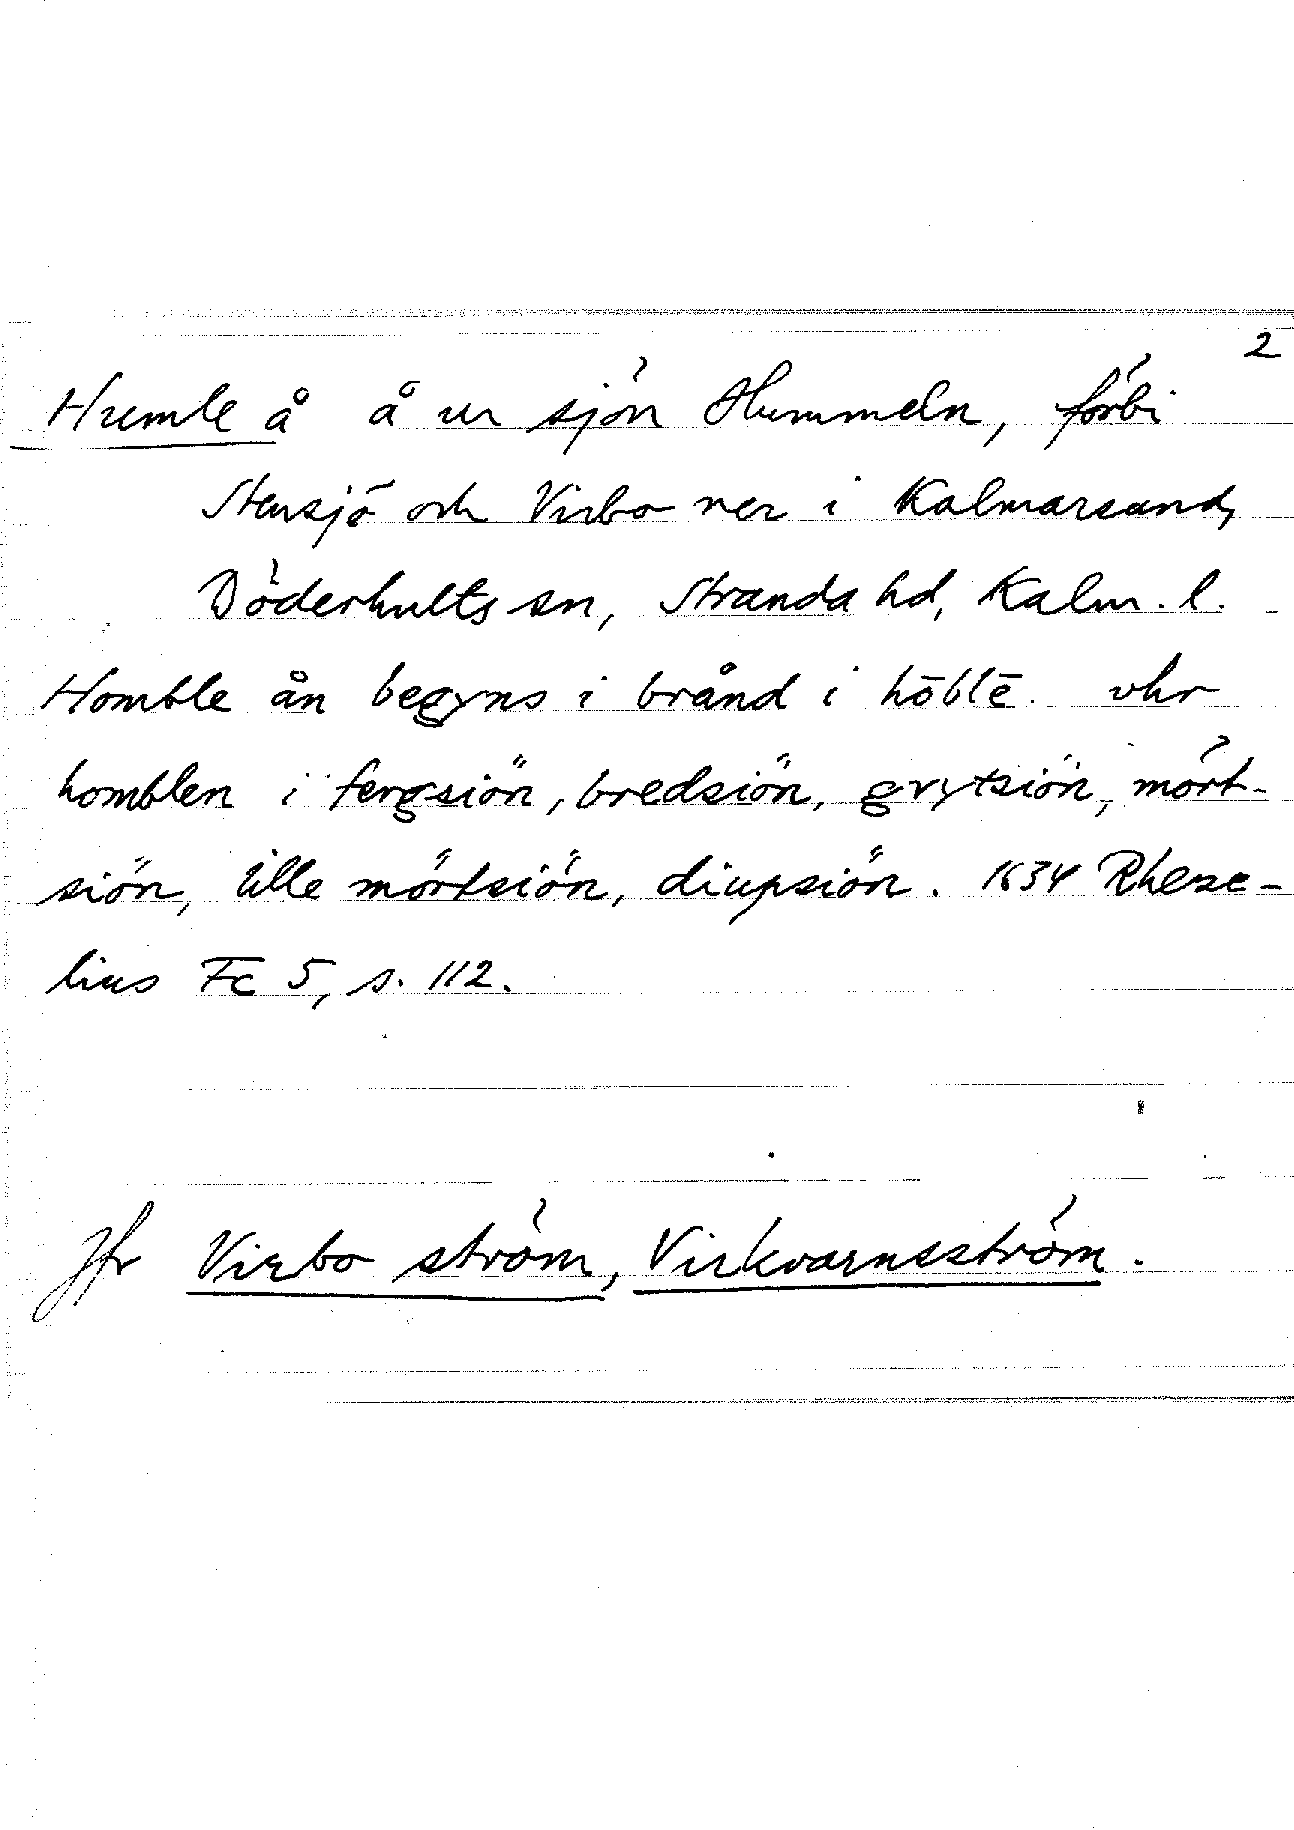 2
Humle å å ur sjön Hummeln, förbi
Stensjö och Virbo ner i Kalmarsund,
Döderhults sn, Stranda hd, Kalm. l.
Homble ån begyns i brånd i hōblē. vhr
homblen i fergsiön, bredsiön, grytsiön, mört-
siön, lille mörtsiön, diupsiön. 1634 Rheze-
lius Fc 5, s. 112.
Jfr Virbo ström, Virkvarnsström.